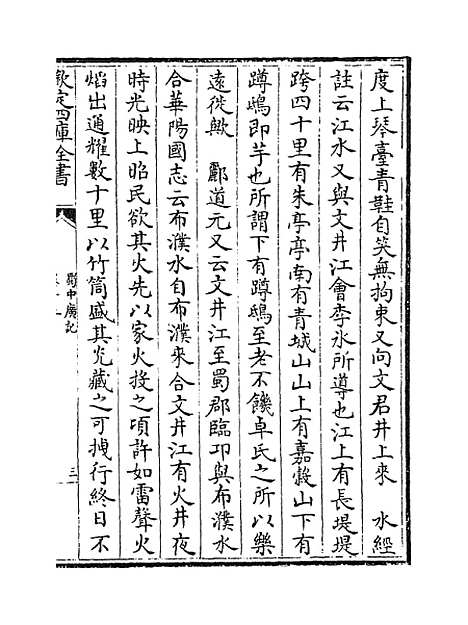 度上琴臺青鞋自笑無拘束又向文君井上來　水經
註云江水又與文井江會李冰所導也江上有長堤堤
跨四十里有朱亭亭南有青城山山上有嘉榖山下有
蹲鴟即芋也所謂下有蹲鴟至老不饑卓氏之所以樂
遠徙歟　酈道元又云文井江至蜀郡臨邛與布濮水
合華陽國志云布濮水自布濮來合文井江有火井夜
時光映上昭民欲其火先以家火投之項許如雷聲火
焰出通耀數十里以竹筒盛其光藏之可拽行終日不
欽定四庫全書
蜀中廣記
三